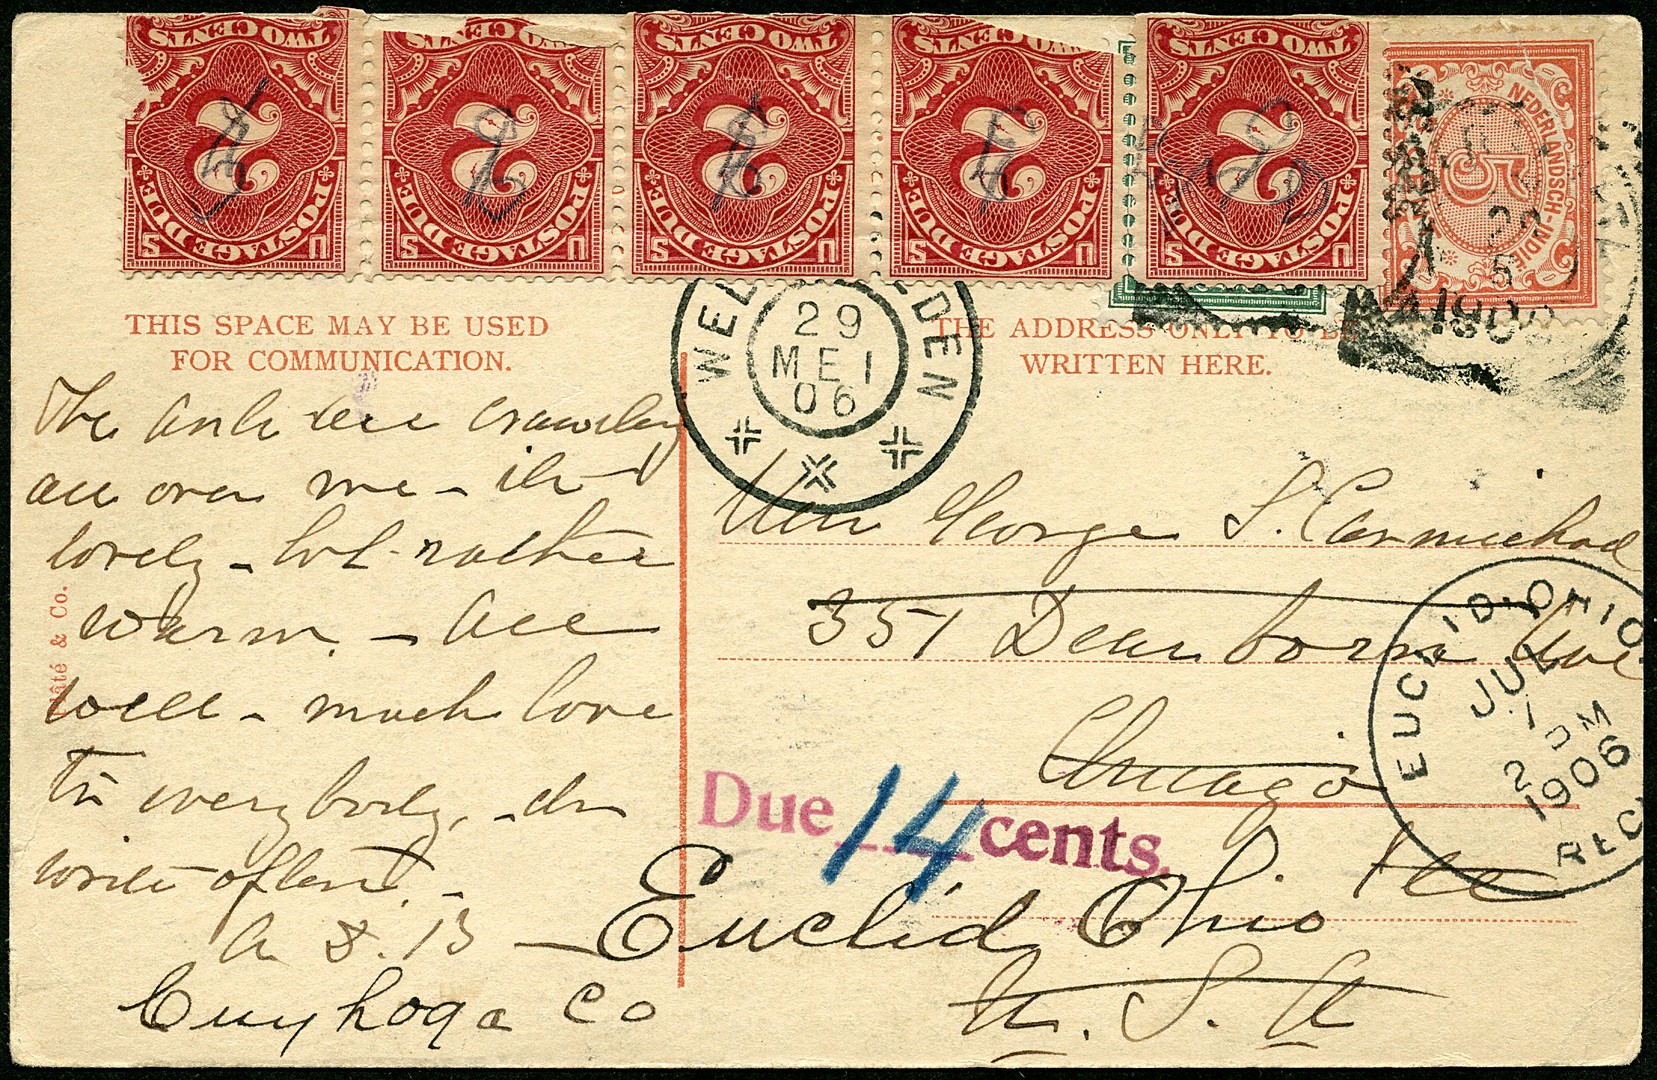 TWO CENTS TWO CENTS TWO CENTS TWO CENTS TWO CENTS
2 2 2 2 2
POSTAGE DUE POSTAGE DUE POSTAGE DUE POSTAGE DUE POSTAGE DUE
U S U S U S U S U S
NEDERLANDSCH-INDIË
5
29
5
190
WEL DEN
29
MEI
06
THIS SPACE MAY BE USED
FOR COMMUNICATION.
THE ADDRESS ONLY TO BE
WRITTEN HERE.
The ants are crawling
all over me - it's
lovely - but rather
warm. - All
well - much love
to everybody, - do
write often. -
A. S. B
& Co.
George S. Carmichael
351 Dearborn Ave
Chicago
Ill
Due 14 cents.
Euclid, Ohio
Cuyhoga Co
U. S. A
EUCLID. OHIO.
JUL
1
2 PM
1906
REC'